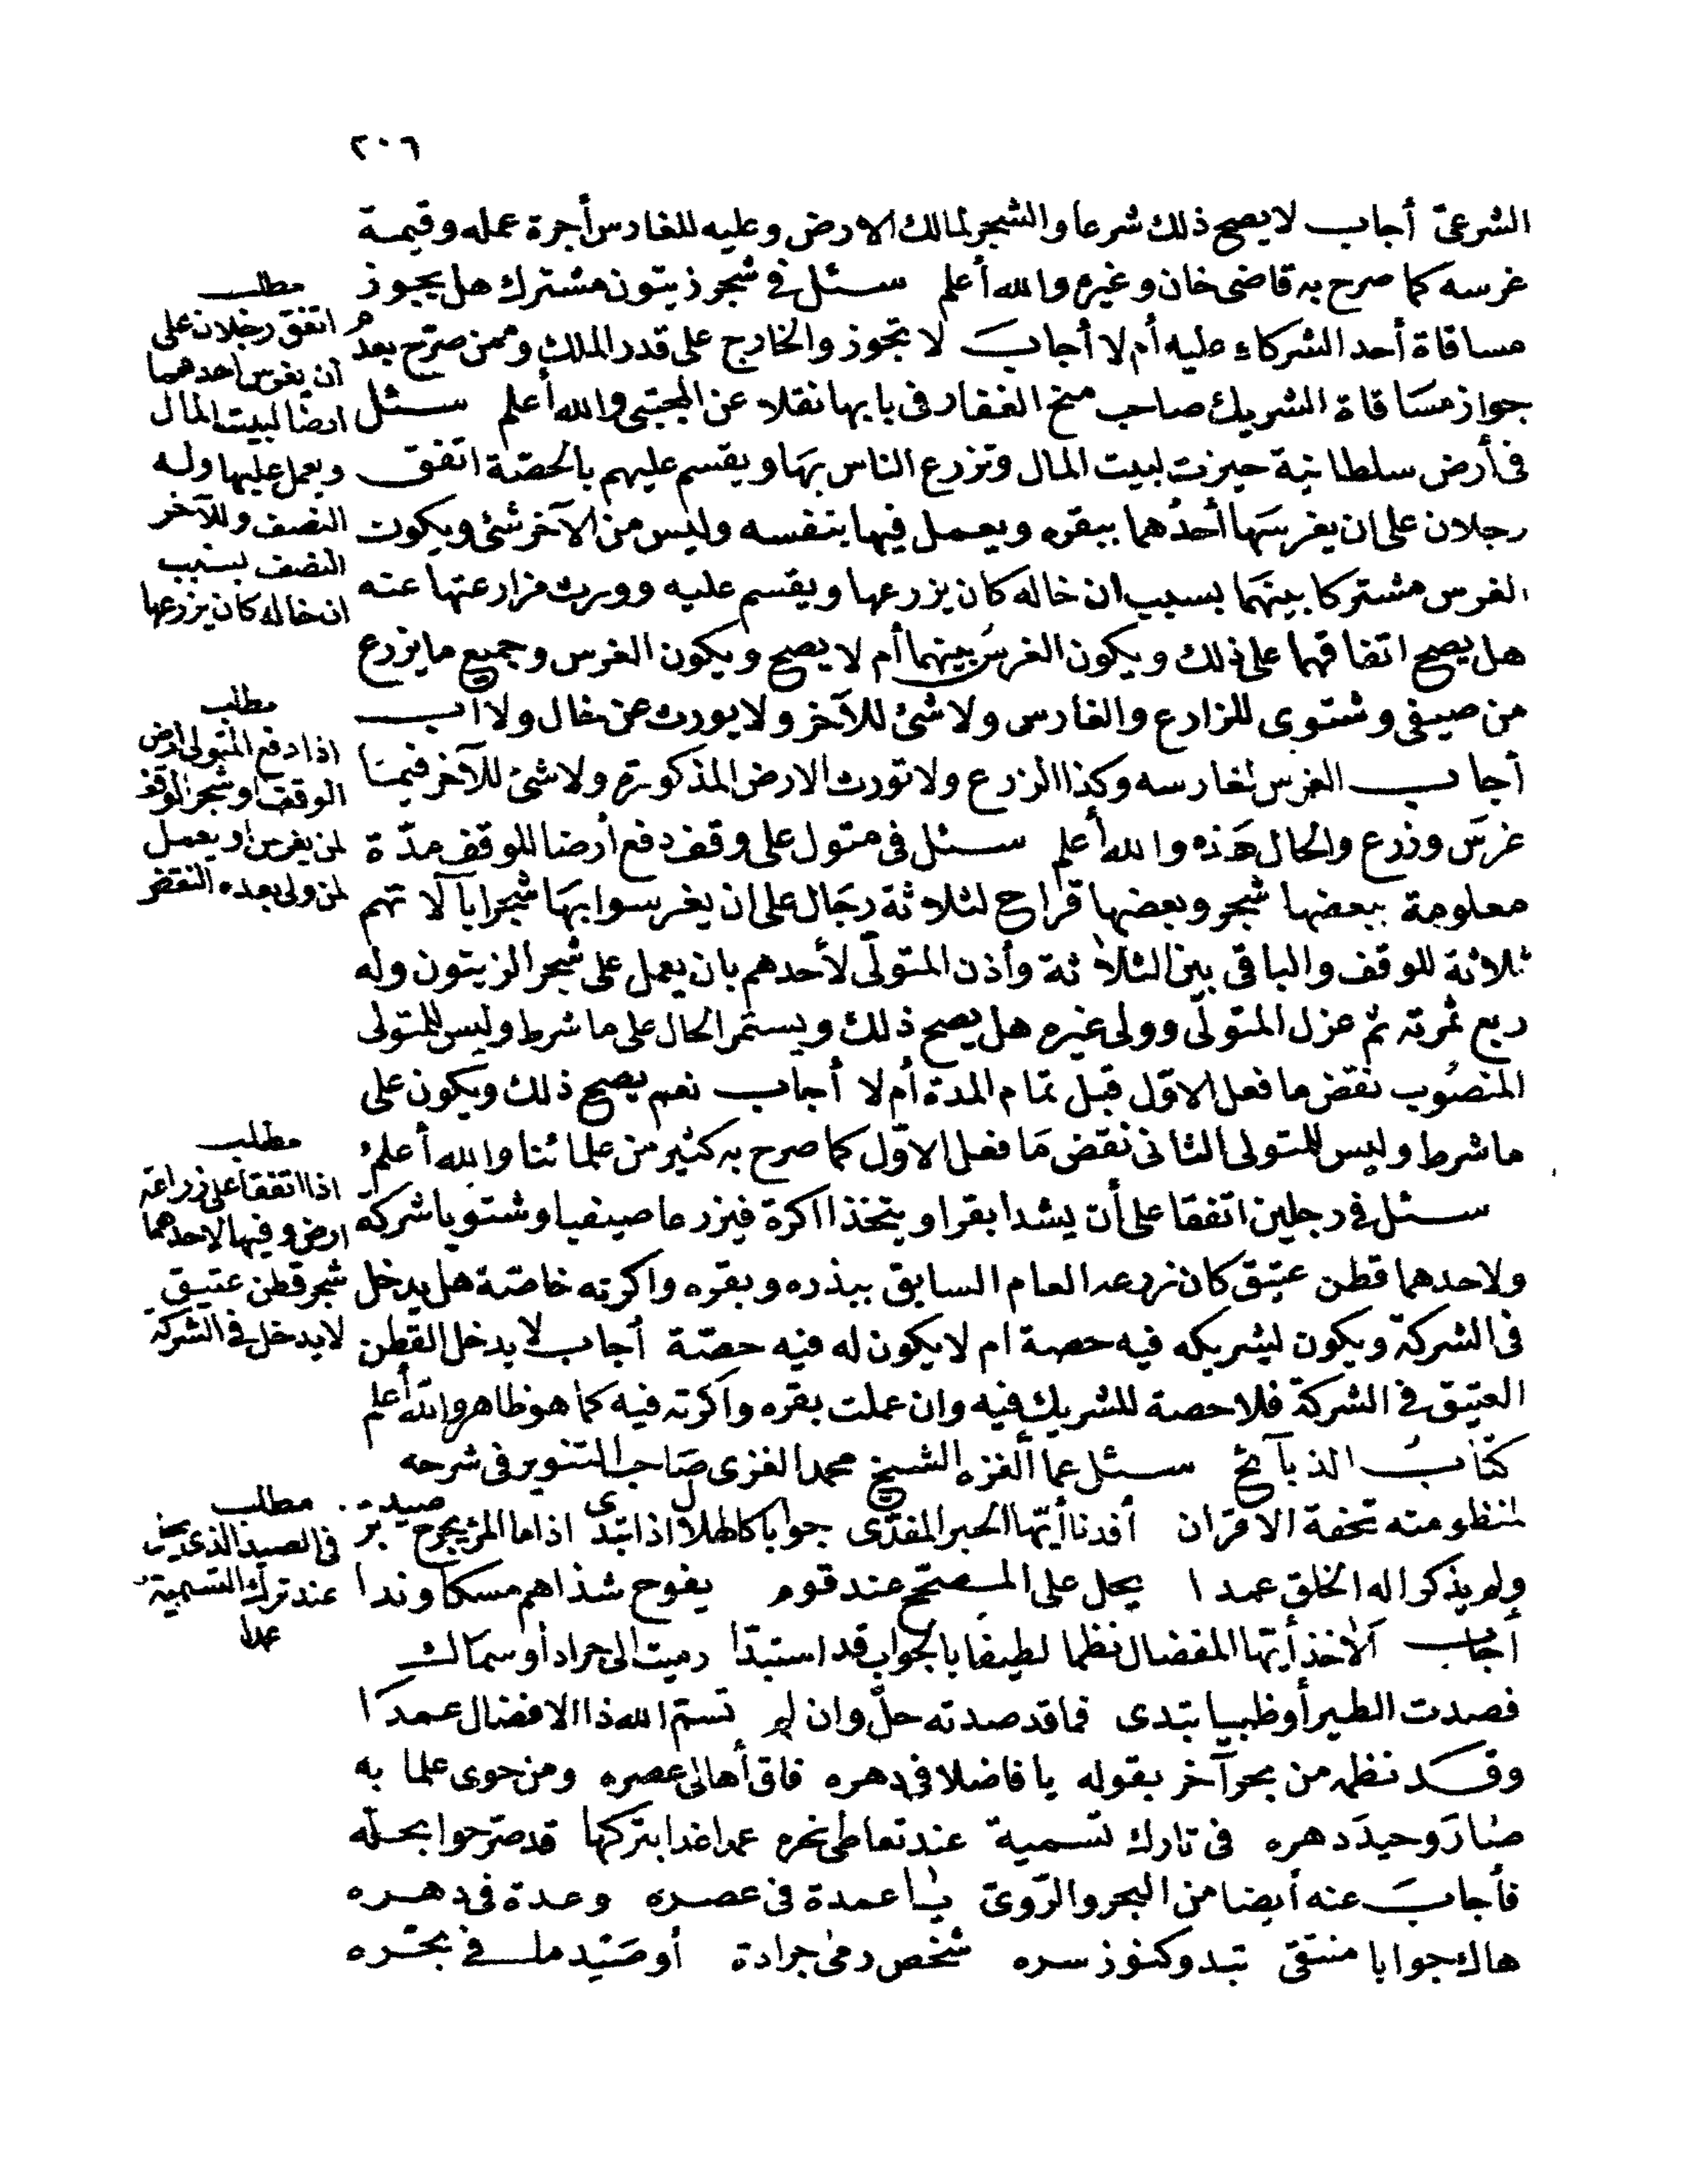 ٢٠٦
الشرعىّ أجاب لا يصح ذلك شرعا والشجر لمالك الارض وعليه للغارس أجرة عمله وقيمة
غرسه كما صرح به قاضى خان وغيره والله أعلم سئل فى شجر زيتون مشترك هل يجوز
مساقاة أحد الشركاء عليه أم لا أجاب لا تجوز والخارج على قدر الملك وممن صرّح بعدم
جواز مساقاة الشريك صاحب منح الغفار فى بابها نقلا عن المجتبى والله أعلم سئل
فى أرض سلطانية حيزت لبيت المال وتزرع الناس بها ويقسم عليهم بالحصّة اتفق
رجلان على ان يغرسها أحدُهما ببقره ويعمل فيها بنفسه وليس من الآخر شئ ويكون
الغرس مشتركا بينهما بسبب ان خاله كان يزرعها ويقسم عليه وورث مزارعتها عنه
هل يصح اتفاقهما على ذلك ويكون الغرسُ بينهما أم لا يصح ويكون الغرس وجميع ما يزرع
من صيفى وشتوى للزارع والغارس ولا شئ للآخر ولا يورث عن خال ولا أب
أجاب الغرس لغارسه وكذا الزرع ولا تورث الارض المذكورة ولا شئ للآخر فيما
غرسَ وزرع والحال هَذه والله أعلم سئل فى متول على وقف دفع أرضا للوقف مدّة
معلومة ببعضها شجر وبعضها قراح لثلاثة رجَال على ان يغرسوا بهَا شجرا با لا تهم
ثلاثة للوقف والباقى بين الثلاثة وأذن المتولّى لأحدهم بان يعمل على شجر الزيتون وله
ربع ثمرته ثم عزل المتولّى وولى غيره هل يصح ذلك ويستمر الحال على ما شرط وليس للمتولى
المنصُوب نقض ما فعل الاوّل قبل تمام المدة أم لا أجاب نعم يصح ذلك ويكون على
ما شرط وليس للمتولى الثانى نقض مَا فعل الاوّل كما صرح به كثير من علمائنا والله أعلمُ
سئل فى رجلين اتفقا على أن يشدا بقرا ويتخذا اكرة فيزرعا صيفيا وشتويا شركة
ولاحدهما قطن عتيق كان زرعه العام السابق ببذره وبقره واكرته خاصّة هل يدخل
فى الشركة ويكون لشريكه فيه حصة ام لا يكون له فيه حصّة أجاب لا يدخل القطن
العتيق فى الشركة فلا حصة للشريك فيه وان عملت بقره واكرته فيه كما هو ظاهر والله أعلم
كتَابُ الذبآئح سئل عما ألغزه الشيخ محمد الغزى صَاحب التنوير فى شرحه
لمنظومته تحفة الاقران أفدنا أيّها الحبر المفدّى جوابا كالهلال اذا تبدّى اذا ما المرئ يجرح صيد بر
ولم يذكر اله الخلق عمدا يحل على المصحّح عند قوم يفوح شذاهم مسكا وندا
أجَاب ألا خذ أيّها المفضال نظما لطيفا بالجواب قد استبدّا رميت الى جراد أو سمَاك
فصدت الطير أو ظبيا تبدى فما قد صدته حلّ وان لم تسم الله ذا الافضال عمدَا
وقَد نظمه من بحر آخر بقوله يا فاضلا فى دهره فاق أهالى عصره ومن حوى علما به
صَارَ وحيدَ دهره فى تارك تسمية عند تعاطى نحره عمدا غدا بتركها قد صرّحوا بحلّه
فأجابَ عنه أيضا من البحر والرّوىّ يا عمدة فى عصره وعدة فى دهره
هاك جوابا منتقى تبدو كنوز سره شخص رمى جرادة أو صَيْد ما فى بحَره
مطلب
اتفق رجلان على
ان يغرس احدهما
ارضا لبيت المال
ويعمل عليها وله
النصف وللآخر
النصف بسبب
ان خاله كان يزرعها
مطلب
اذا دفع المتولى ارض
الوقف او شجر الوقف
لمن يغرس او يعمل
لمن ولى بعده النقض
مطلب
اذا اتفقا على زراعة
ارض وفيها لاحدهما
شجر قطن عتيق
لا يدخل فى الشركة
مطلب
فى الصيد الذى يحل
عند ترك التسمية
عمدا